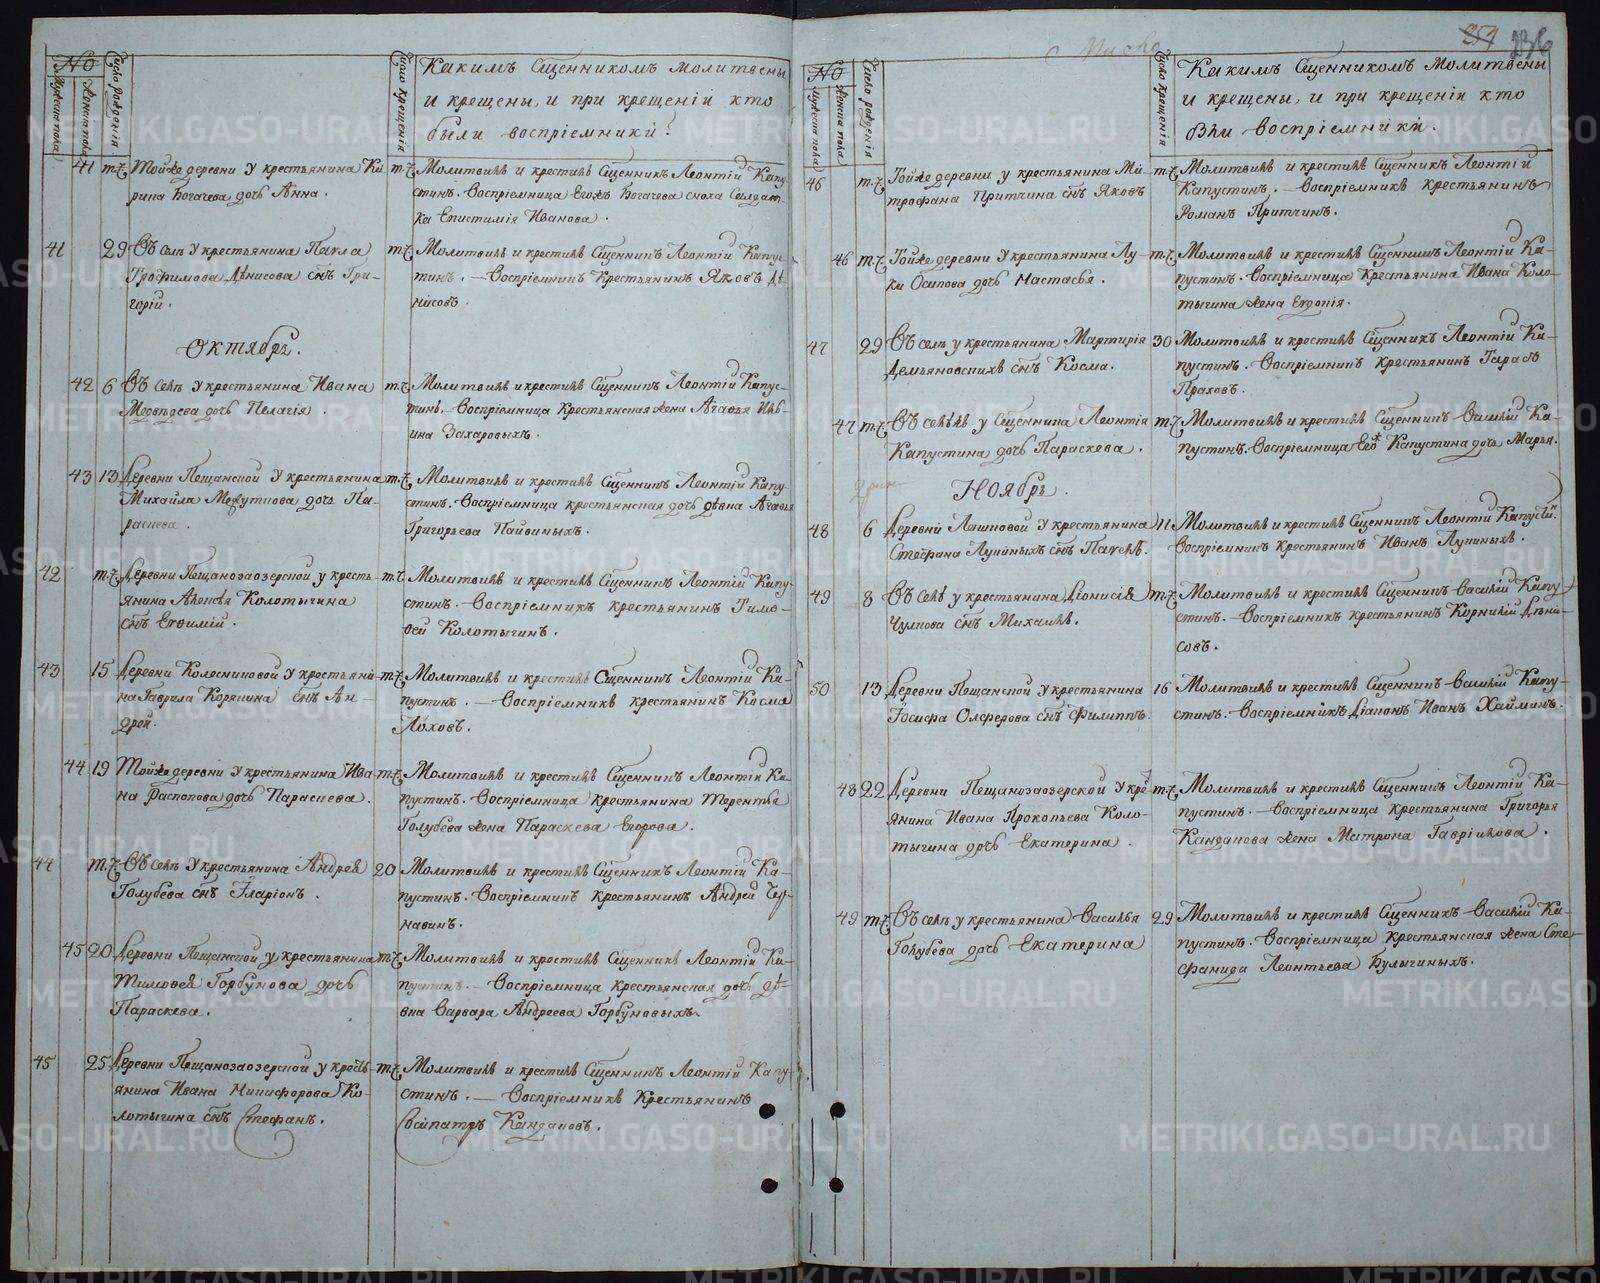 №
Мужеска пола
Женска пола
Число рожденія
Число крещенія
Какимъ Сщенникомъ молитвены
и крещены, и при крещеніи кто
были воспріемники?
41 т.ч. Тойже деревни у крестьянина Ки-
рила Богачева дочь Анна.
т.ч. Молитвилъ и крестилъ Сщенникъ Леонтій Капу-
стинъ. Воспріемница Богачева сноха Салдат-
ка Епистимія Иванова.
41 29 Въ селѣ у крестьянина Павла
Трофимова Дѣнисова сынъ Гри-
горій.
т.ч. Молитвилъ и крестилъ Сщенникъ Леонтій Капус-
тинъ. — Воспріемникъ Крестьянинъ Яковъ Дѣ-
нисовъ.
Октябрь.
42 6 Въ селѣ у крестьянина Ивана
Медвѣдева дочь Пелагія.
т.ч. Молитвилъ и крестилъ Сщенникъ Леонтій Капус-
тинъ. Воспріемница Крестьянская жена Агафья Иль-
ина Захаровыхъ.
43 13 Деревни Пещанской у крестьянина
Михайла дочь Па-
раскева.
т.ч. Молитвилъ и крестилъ Сщенникъ Леонтій Капу-
стинъ. Воспріемница крестьянская дочь дѣвна Агафья
Григорьева Пайвиныхъ.
42 т.ч. Деревни Пещанозаозерской у кресть-
янина Алексѣя Колотыгина
сынъ Евѳимій.
т.ч. Молитвилъ и крестилъ Сщенникъ Леонтій Капу-
стинъ. — Воспріемникъ крестьянинъ Тимо-
ѳей Колотыгинъ.
43 15 Деревни Колесниковой у крестьяни-
на Гаврила Корякина сынъ Ан-
дрей.
т.ч. Молитвилъ и крестилъ Сщенникъ Леонтій Ка-
пустинъ. — Воспріемникъ крестьянинъ Косма
Лоховъ.
44 19 Тойже деревни у крестьянина Ива-
на Распопова дочь Параскева.
т.ч. Молитвилъ и крестилъ Сщенникъ Леонтій Ка-
пустинъ. Воспріемница Крестьянина Терентья
Голубева жена Параскева Егорова.
44 т.ч. Въ селѣ у крестьянина Андрея
Голубева сынъ Иларіонъ.
20 Молитвилъ и крестилъ Сщенникъ Леонтій Ка-
пустинъ. Воспріемникъ Крестьянинъ Андрей Чер-
навинъ.
45 20 Деревни Пещанской у крестьянина
Тимоѳея Горбунова дочь
Параскева.
т.ч. Молитвилъ и крестилъ Сщенникъ Леонтій Ка-
пустинъ. — Воспріемница Крестьянская дочь дѣ-
вна Варвара Андреева Горбуновыхъ.
45 25 Деревни Пещанозаозерской у крестъ-
янина Ивана Никифорова Ко-
лотыгина сынъ Стефанъ.
т.ч. Молитвилъ и крестилъ Сщенникъ Леонтій Капу-
стинъ. — Воспріемникъ Крестьянинъ
Сосипатръ Кандаковъ.
254 236
№
Мужеска пола
Женска пола
Число рожденія
Число крещенія
Какимъ Сщенникомъ молитвены
и крещены, и при крещеніи кто
были воспріемники.
46 т.ч. Тойже деревни у крестьянина Ми-
трофана Притчина сынъ Яковъ
т.ч. Молитвилъ и крестилъ Сщенникъ Леонтій
Капустинъ. — Воспріемникъ крестьянинъ
Романъ Притчинъ.
46 т.ч. Тойже деревни у крестьянина Лу-
ки Осипова дочь Настасья.
т.ч. Молитвилъ и крестилъ Сщенникъ Леонтій Ка-
пустинъ. Воспріемница Крестьянина Ивана Коло-
тыгина жена Евдокія.
47 29 Въ селѣ у крестьянина Мартирія
Демьяновскихъ сынъ Косма.
30 Молитвилъ и крестилъ Сщенникъ Леонтій Ка-
пустинъ. Воспріемникъ крестьянинъ Тарасъ
Праховъ.
47 т.ч. Въ селѣ у Сщенника Леонтія
Капустина дочь Параскева.
т.ч. Молитвилъ и крестилъ Сщенникъ Василій Ка-
пустинъ. Воспріемница Его Капустина дочь Марья.
Ноябрь.
48 6 Деревни у крестьянина
Стефана Лукиныхъ сынъ Павелъ.
11 Молитвилъ и крестилъ Сщенникъ Леонтій Капустин.
Воспріемникъ крестьянинъ Иванъ Лукиныхъ.
49 8 Въ селѣ у крестьянина Діонисія
Чулкова сынъ Михаилъ.
т.ч. Молитвилъ и крестилъ Сщенникъ Василій Капу-
стинъ. — Воспріемникъ крестьянинъ Корнилій Дѣни-
совъ.
50 13 Деревни Пещанской у крестьянина
Іосифа Олферова сынъ Филиппъ.
16 Молитвилъ и крестилъ Сщенникъ Василій Капу-
стинъ. — Воспріемникъ Діаконъ Иванъ Хайминъ.
48 22 Деревни Пещанозаозерской у кре-
янина Ивана Прокопьева Коло-
тыгина дочь Екатерина.
т.ч. Молитвилъ и крестилъ Сщенникъ Леонтій Ка-
пустинъ. — Воспріемница крестьянина Григорья
Кандакова жена Матрона Гаврилова.
49 т.ч. Въ селѣ у крестьянина Василья
Голубева дочь Екатерина
29 Молитвилъ и крестилъ Сщенникъ Василій Ка-
пустинъ. Воспріемница Крестьянская жена Сте-
фанида Леонтьева Булыгиныхъ.
METRIKI.GASO-URAL.RU